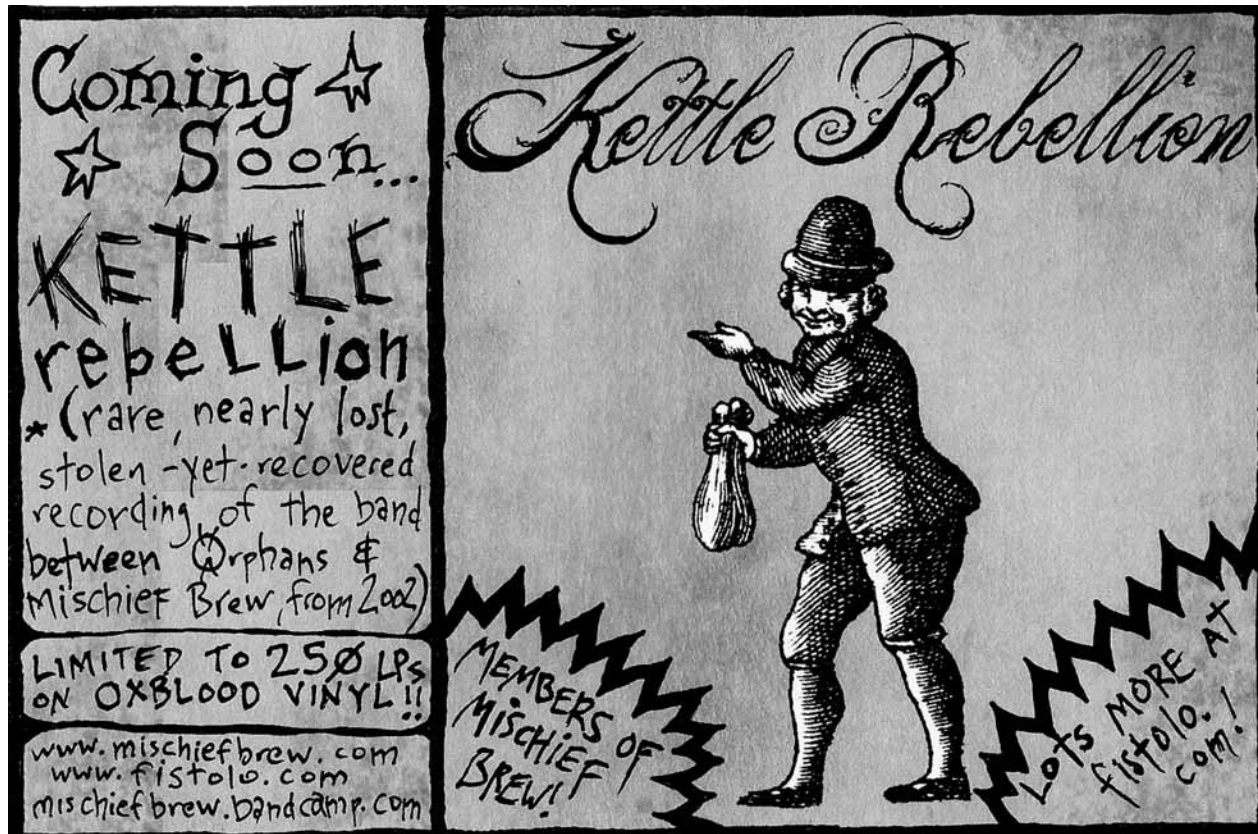 Coming
Soon...
KETTLE
rebeLLion
* (rare, nearly lost,
stolen-yet-recovered
recording of the band
between Orphans &
Mischief Brew, from 2002)
LIMITED TO 250 LPs
ON OXBLOOD VINYL!!
www.mischiefbrew.com
www.fistolo.com
mischiefbrew.bandcamp.com
Kettle Rebellion
MEMBERS OF
MiSCHiEF
BREW!
LOTS MORE AT
fistolo.
com!